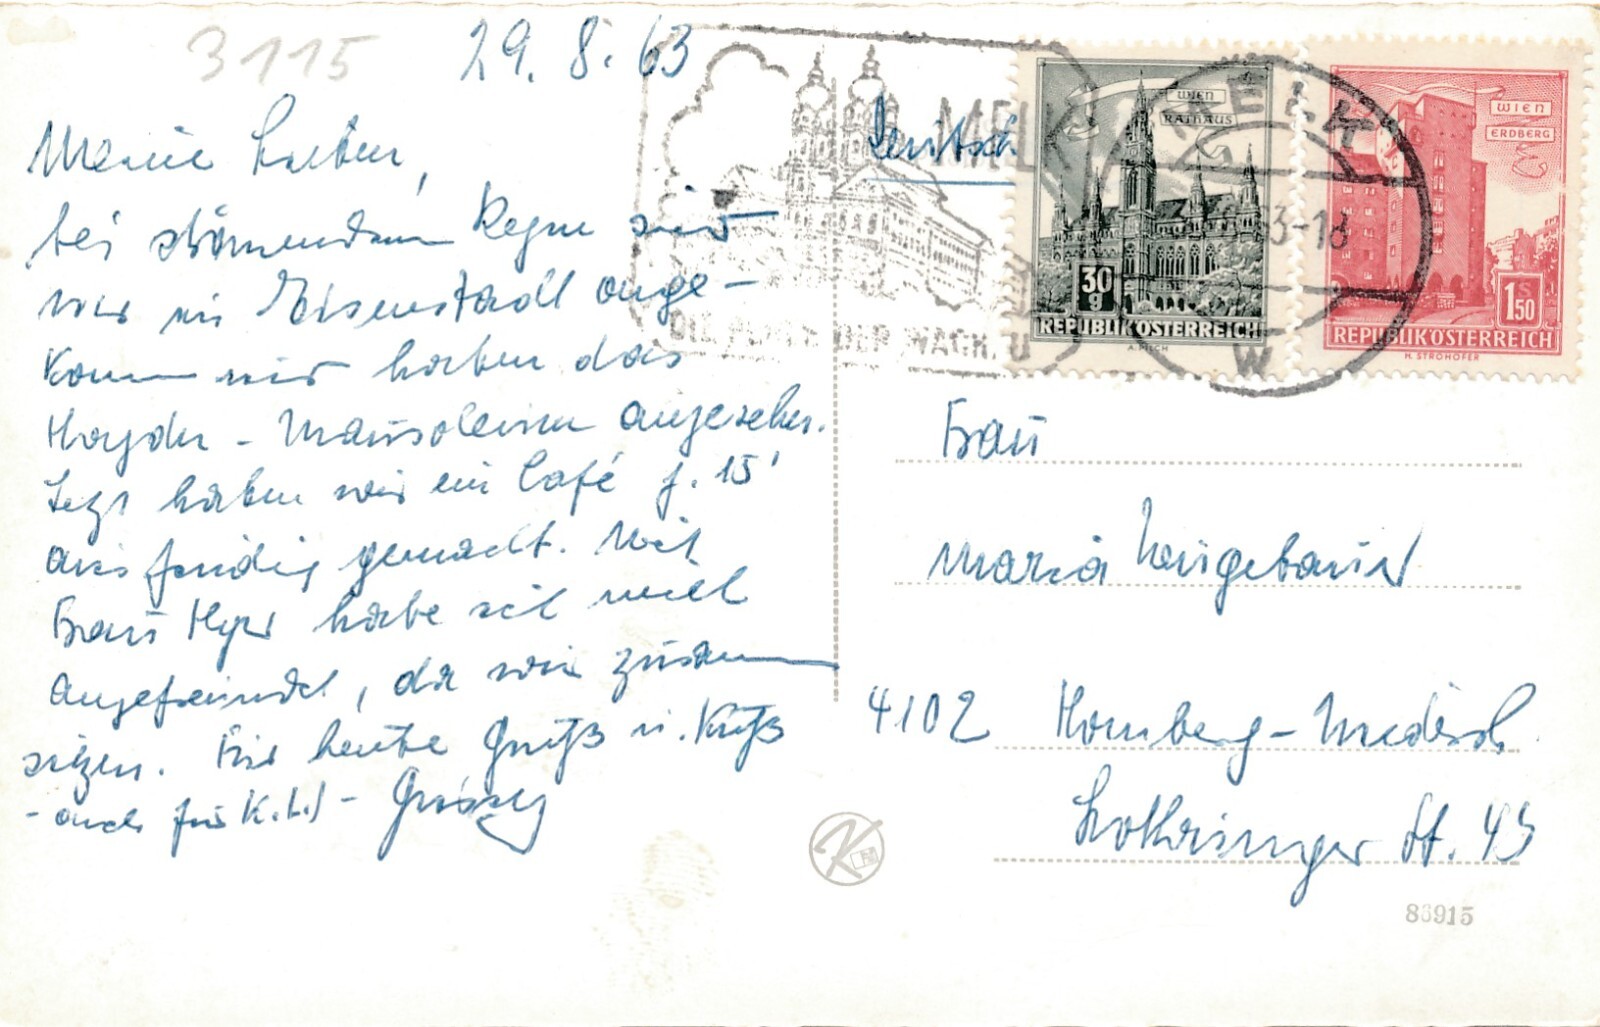 3115
29. 8. 63
Meine Lieben,
bei strömendem Regen sind
wir in Eisenstadt ange-
kommen wir haben das
Haydn - Mausoleum angesehen.
Jetzt haben wir ein Café f. 15'
ausfindig gemacht. Mit
Frau habe ich mich
angefreundet, da wir zusammen
sitzen. Für heute Gruß u. Kuß
- auch für K.L.) -
Deutsch
MELK
DIE PFORTE DER WACHAU
MELK
63-18
W
WIEN
RATHAUS
30
g
REPUBLIK ÖSTERREICH
A. PILCH
WIEN
ERDBERG
1 S
50
REPUBLIK ÖSTERREICH
H. STROHOFER
Frau
Maria Neugebauer
4102 Homberg-Niederrh
Lothringer St. 45
K
86915